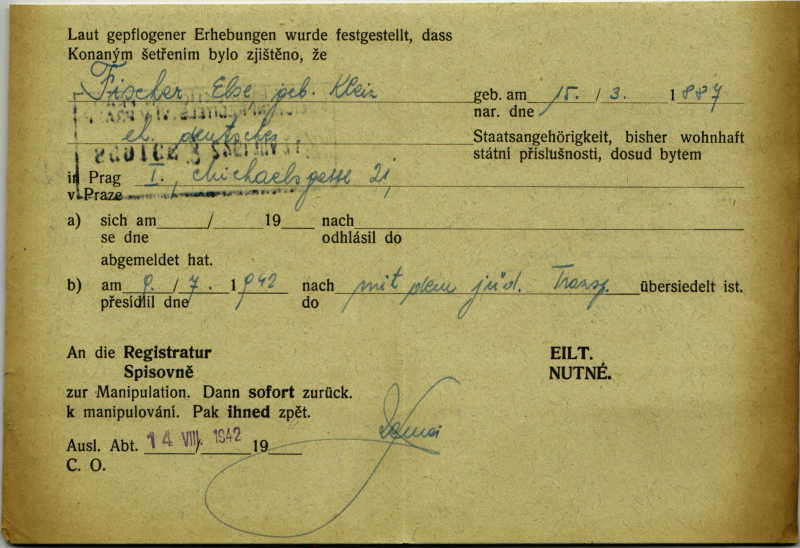 Laut gepflogener Erhebungen wurde festgestellt, dass
Konaným šetřením bylo zjištěno, že
Fischer Else geb. Klein geb. am 15. / 3. 1 887
nar. dne
eh. deutsches Staatsangehörigkeit, bisher wohnhaft
státní příslušnosti, dosud bytem
in Prag I., Michaelsgasse 21,
v Praze
a) sich am / 19 nach
se dne odhlásil do
abgemeldet hat.
b) am 9. / 7. 1 942 nach mit dem jüd. Transp. übersiedelt ist.
přesídlil dne do
An die Registratur EILT.
Spisovně NUTNÉ.
zur Manipulation. Dann sofort zurück.
k manipulování. Pak ihned zpět.
Ausl. Abt. 14 VIII. 1942 / 19
C. O.